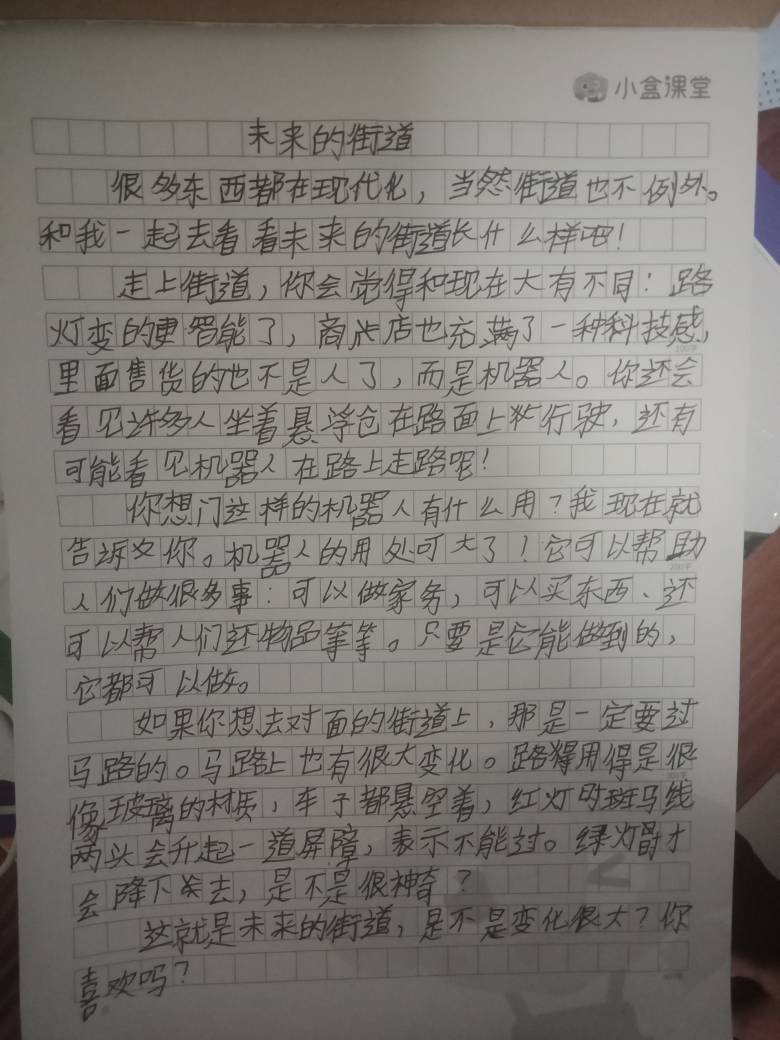 小盒课堂
未来的街道
很多东西都在现代化，当然街道也不例外。
和我一起去看看未来的街道长什么样吧！
走上街道，你会觉得和现在大有不同：路
灯变的更智能了，商店也充满了一种科技感，
里面售货的也不是人了，而是机器人。你还会
看见许多人坐着悬浮仓在路面上行驶，还有
可能看见机器人在路上走路呢！
你想问这样的机器人有什么用？我现在就
告诉你。机器人的用处可大了！它可以帮助
人们做很多事：可以做家务，可以买东西、还
可以帮人们还物品等等。只要是它能做到的，
它都可以做。
如果你想去对面的街道上，那是一定要过
马路的。马路上也有很大变化。路用得是很
像玻璃的材质，车子都悬空着，红灯时斑马线
两头会升起一道屏障，表示不能过。绿灯时才
会降下去，是不是很神奇？
这就是未来的街道，是不是变化很大？你
喜欢吗？